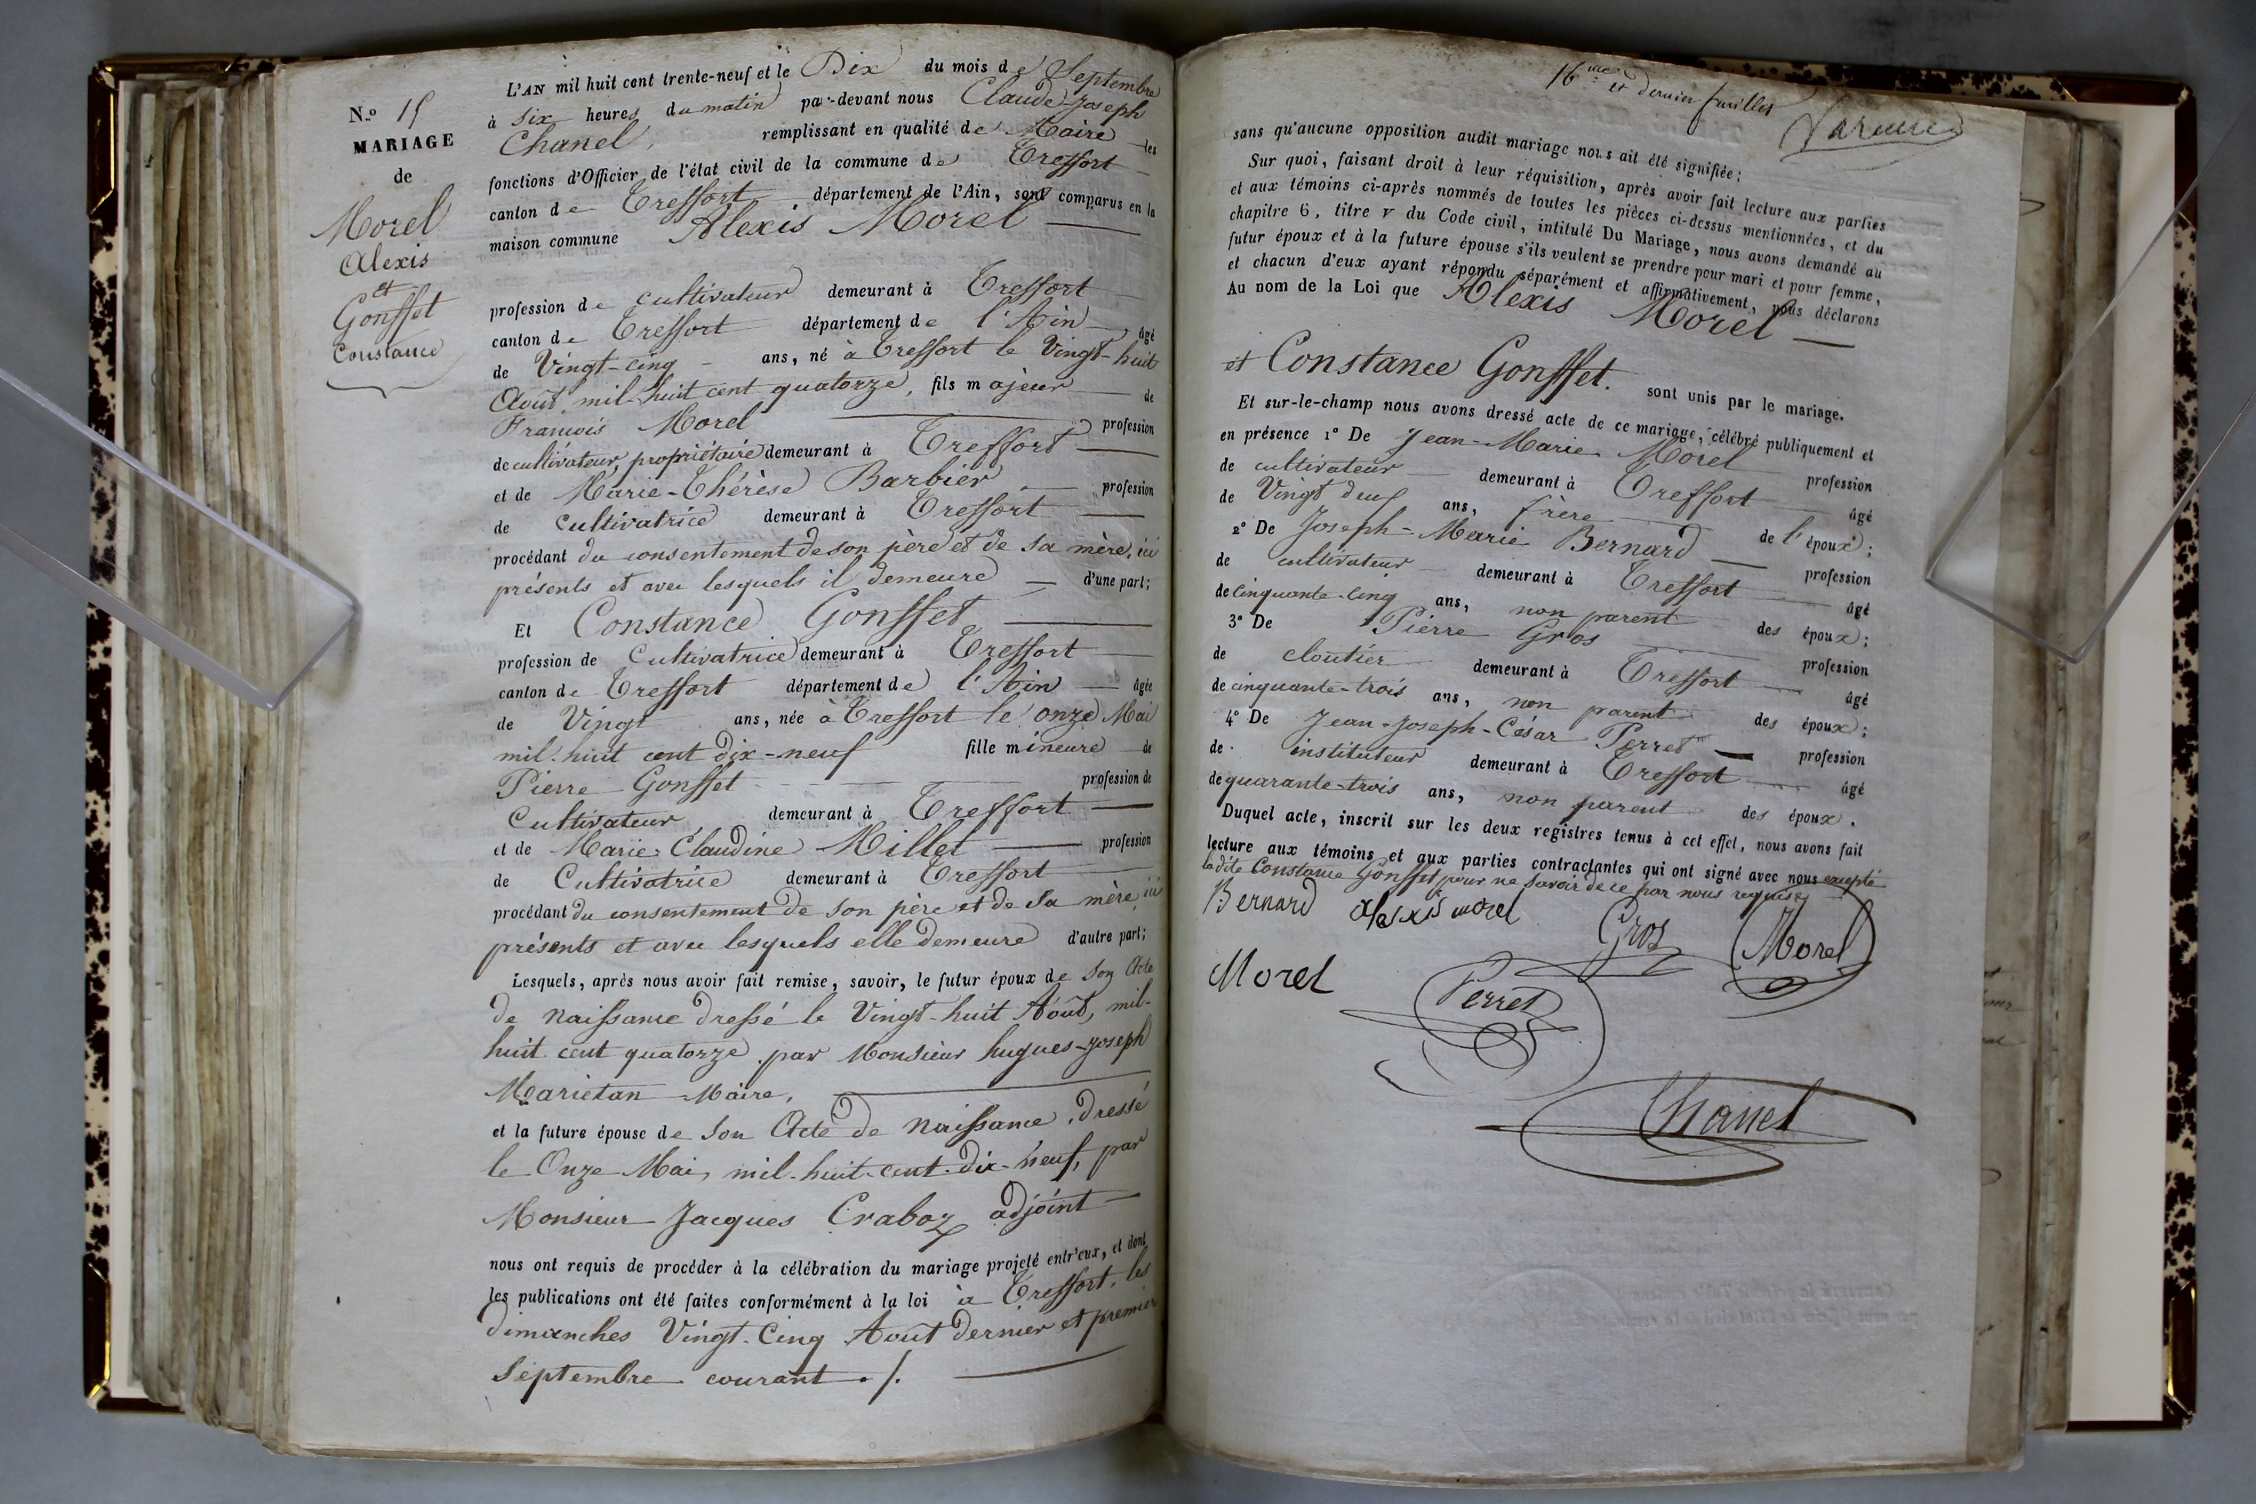 N.o 15
MARIAGE
de
Morel
Alexis
et
Gonsset
Constance
L'AN mil huit cent trente-neuf et le Dix du mois de Septembre
à Six heures du matin par-devant nous Claude-Joseph
Chanel, remplissant en qualité de Maire les
fonctions d'Officier de l'état civil de la commune de Treffort
canton de Treffort département de l'Ain, sont comparus en la
maison commune Alexis Morel
profession de cultivateur demeurant à Treffort
canton de Treffort département de l'Ain âgé
de Vingt-cinq ans, né à Treffort le Vingt-huit
Août, mil-huit cent quatorze, fils majeur de
François Morel profession
de cultivateur, propriétaire demeurant à Treffort
et de Marie-Thérèse Barbier profession
de cultivatrice demeurant à Treffort
procédant du consentement de son père et de sa mère, ici
présents et avec lesquels il demeure d'une part;
Et Constance Gonsset
profession de Cultivatrice demeurant à Treffort
canton de Treffort département de l'Ain âgée
de Vingt ans, née à Treffort le onze Mai
mil-huit cent dix-neuf fille mineure de
Pierre Gonsset profession de
Cultivateur demeurant à Treffort
et de Marie-Claudine Millet profession
de Cultivatrice demeurant à Treffort
procédant du consentement de son père et de sa mère, ici
présents et avec lesquels elle demeure d'autre part;
Lesquels, après nous avoir fait remise, savoir, le futur époux de son Acte
de naissance dressé le Vingt-huit Août, mil-
huit cent quatorze par Monsieur hugues-Joseph
Marietan Maire,
et la future épouse de son Acte de naissance, dressé
le Onze Mai, mil-huit-cent-dix-neuf, par
Monsieur Jacques Craboz adjoint
nous ont requis de procéder à la célébration du mariage projeté entr'eux, et dont
les publications ont été faites conformément à la loi à Treffort, les
dimanches Vingt-Cinq Août dernier et premier
Septembre courant ./.
16me et dernier feuillet
sans qu'aucune opposition audit mariage nous ait été signifiée;
Sur quoi, faisant droit à leur réquisition, après avoir fait lecture aux parties
et aux témoins ci-après nommés de toutes les pièces ci-dessus mentionnées, et du
chapitre 6, titre v du Code civil, intitulé Du Mariage, nous avons demandé au
futur époux et à la future épouse s'ils veulent se prendre pour mari et pour femme,
et chacun d'eux ayant répondu séparément et affirmativement, nous déclarons
Au nom de la Loi que Alexis Morel
et Constance Gonsset. sont unis par le mariage.
Et sur-le-champ nous avons dressé acte de ce mariage, célébré publiquement et
en présence 1o De Jean-Marie Morel profession
de cultivateur demeurant à Treffort âgé
de Vingt deux ans, frère de l'époux;
2o De Joseph-Marie Bernard profession
de cultivateur demeurant à Treffort âgé
de cinquante-cinq ans, non parent des époux;
3o De Pierre Gros profession
de cloutier demeurant à Treffort âgé
de cinquante-trois ans, non parent des époux;
4o De Jean-Joseph-César Perret profession
de instituteur demeurant à Treffort âgé
de quarante-trois ans, non parent des époux.
Duquel acte, inscrit sur les deux registres tenus à cet effet, nous avons fait
lecture aux témoins et aux parties contractantes qui ont signé avec nous excepté
ladite Constance Gonsset pour ne savoir de ce par nous requise
Bernard alexis morel Gros Morel
Morel Perret
Chanel